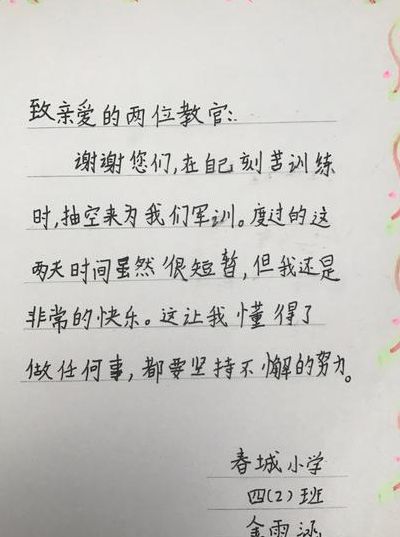 致亲爱的两位教官：
谢谢您们，在自己刻苦训练
时，抽空来为我们军训。度过的这
两天时间虽然很短暂，但我还是
非常的快乐。这让我懂得了
做任何事，都要坚持不懈的努力。
春城小学
四(2)班
金雨涵